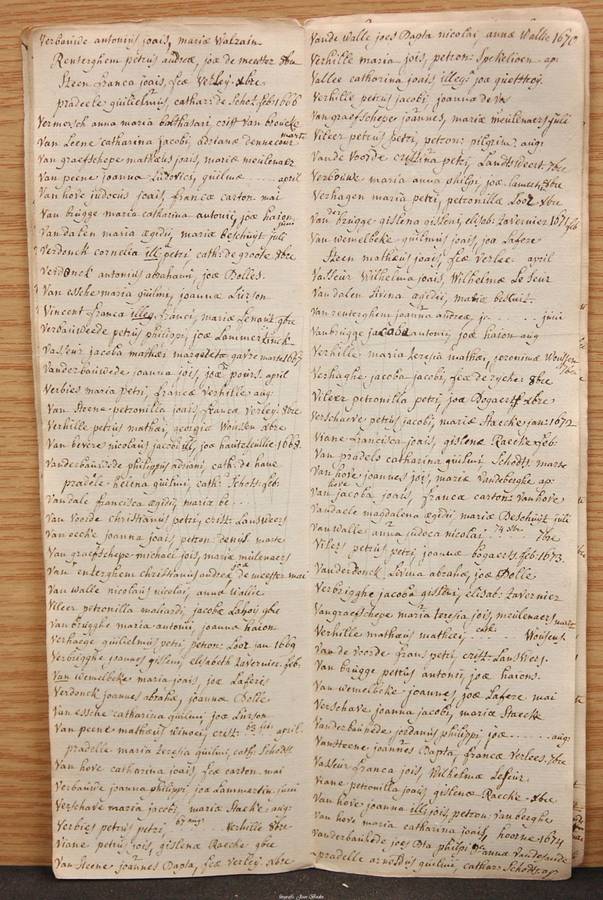 Verbauide antonius joais, mariæ Walrain
Renterghem petrus andreæ, joæ de meester xbr
Steen franca joais, fcæ Verley xbre
pradeele guilielmus, cathar: de Schodt feb 1666
Vermersch anna maria balthasari, crist: Van
Van Loene catharina jacobi, adrianæ martii
Van graefschepe mathæus joris, mariæ meulenaer
Van peene joanna Ludovici, guilmæ april
Van hove judocus joais, francæ carton mai
Van brugge maria catharina antonii, joæ haion
Van dalen maria ægidii, mariæ beschuijt juli
Verdonck cornelia ille: petri cath: de groote 8bre
Verdonck antonius abrahami, joæ Bolles
Van essche maria guilmi, joanna Lusson
Vincent franca illeg: franci, mariæ Lenoir 9bre
Verbauwede petrus philippi, joæ Lammertinck
Vasseur jacoba mathæi margaretæ martii 1667
Vanderbauwede joanna jois, joæ april
Verbies maria petri, francæ verhille aug:
Van Steene petronilla joais franca verley 8bre
Verhille petrus mathæi, georgiæ Wousen xbre
Van bevere nicolaus jacobi ill, joæ 1668
Vanderbauwede philippus adriani, cath: de hane
pradele helena guilmi, cath: Schodt feb:
Vandale francisca ægidii, mariæ be..
Van Voorde christianus petri, crist: Lansweers
Van eecke joanna jois, petron: denys marte
Van graefschepe michael jois, maria meulenaers
Van renterghem christianus andreæ, joæ de meester mai
Van walle nicolaus nicolai, anna Wallie
Vileer petronilla maliardi, jacobæ Lahoij 9bre
Van brugghe maria antonii, joanna haion
Verhaege guilielmus petri, petron: Loot jan 1669
Verbrugghe joannes gisleni, elisabeth tavernier feb:
Van Wemelbeke maria joais, joæ Laferis
Verdonck joannes abrahæ, joannæ Bolle
Van essche catharina guilmi, joæ Lusson
Van peene mathæus winoci, crist: april
pradelle maria teresia guilmi, cath: Schodt
Van hove catharina joais, fcæ carton mai
Verbauide joanna philippi, joæ Lammertin juni
Verschave maria jacobi, mariæ Staeke aug:
Verbies petrus petri, Verhille 8bre
Viane petrus jois, gislenæ Raeche 9bre
Van Steene joannes Bapta, fcæ verley xbre
Vande walle joes Bapta nicolai, annæ Wallie 1670
Verhille maria jois, petron: Spekelioen ap:
Vallee catharina joais illeg: joæ
Verhille petrus jacobi, joanna de Vos
Van graefschepe joannes, mariæ meulenaers juli
Vileer petrus petri, petron: pilgrim aug:
Vande Voorde cristina petri, Landtsweert 7bre
Verbouwe maria anna philipi, joæ xbre
Verhagen maria petri, petronillæ Loot xbre
Van der brugge gislena gisleni, elisab: tavernier 1671 feb
Van wemelbeke guilmus joais, joæ Lafere
Steen mathæus joais, fcæ Verlee april
Vasseur Wilhelma joais, Wilhelmæ Leseur
Van dalen livina ægidii, mariæ beschuit
Van renterghem joanna andreæ, jo....... juni
Vanbrugge jacoba antonii, joæ haion aug
Verhille maria teresia mathæi, joronimæ Wousen 7bre
Verhaghe jacoba jacobi, fcæ de rycke 8bre
Vileer petronilla petri, joæ Bogaert xbre
Verschaeve petrus jacobi, mariæ Staecke jan: 1672
Viane francisca joais, gislenæ Raecke feb:
Van pradels catharina guilmi Schodts marte
Van hove joannes jois, mariæ Vandeberghe ap:
Van hove jacoba joais, franca carton vanhove
Vandaele magdalena ægidii mariæ Beschuyt juli
Van walle anna judoca nicolai.. 7bre
Vilers petrus petri, joannæ bogaert feb: 1673
Vanderdonck Livina abrahæ, joæ Bolle
Verbrigghe jacoba gisleni, elisab: tavernier
Van graefschepe maria teresia jois, meulenaers martii
Verhille mathæus mathæi, cath: Wousens
Van de Voorde frans petri, crist: Lansweers
Van brugge petrus antonii, joæ haions
Van wemelbeke joannes joæ Lafere mai
Verschave joanna jacobi, mariæ Staecke
Vanderbauwede jordanus philippi, joæ...... aug:
Vansteene joannes Bapta, francæ verlees 7bre
Vasseur franca jois, Wilhelmæ Leseur
Viane petronilla joais, gislenæ Raecke xbre
Van hove joanna ill: jois, petron: van berghe
Van hove maria catharina joais, hoorne 1674
Vanderbaulede joes Bta philipi, anna Vandewalle
pradelle arnoldus guilmi, cathar: Schodt, ap